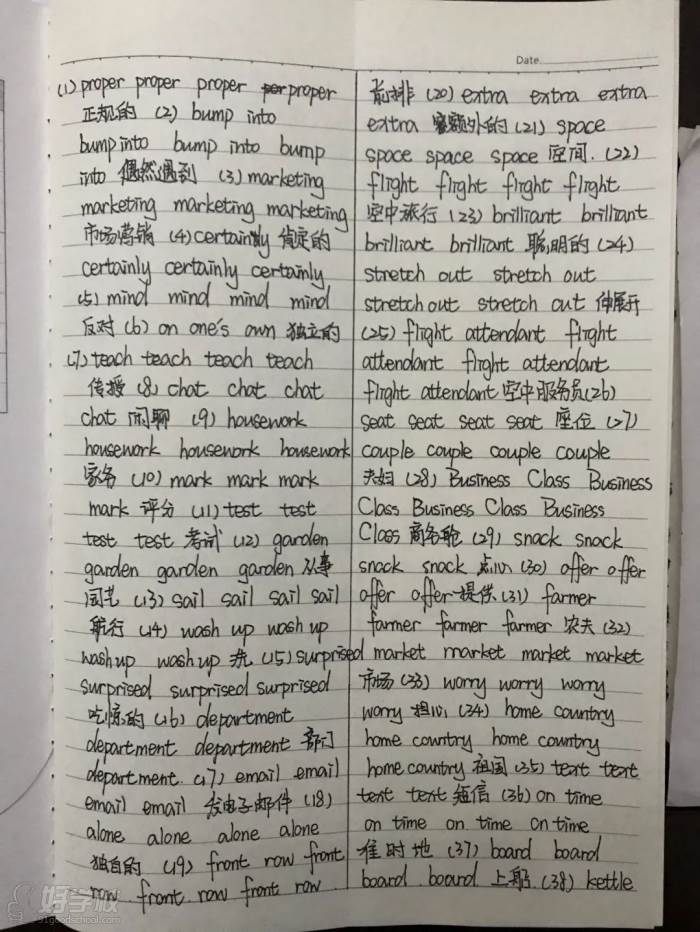 Date.
(1) proper proper proper proper
正规的 (2) bump into
bump into bump into bump
into 偶然遇到 (3) marketing
marketing marketing marketing
市场营销 (4) certainly 肯定的
certainly certainly certainly
(5) mind mind mind mind
反对 (6) on one's own 独立的
(7) teach teach teach teach
传授 (8) chat chat chat
chat 闲聊 (9) housework
housework housework housework
家务 (10) mark mark mark
mark 评分 (11) test test
test test 考试 (12) garden
garden garden garden 从事
园艺 (13) sail sail sail sail
航行 (14) wash up wash up
wash up wash up 洗 (15) surprised
surprised surprised surprised
吃惊的 (16) department
department department 部门
department. (17) email email
email email 发电子邮件 (18)
alone alone alone alone
独自的 (19) front row front
row front row front row
前排 (20) extra extra extra
extra 额外的 (21) space
space space space 空间. (22)
flight flight flight flight
空中旅行 (23) brilliant brilliant
brilliant brilliant 聪明的 (24)
stretch out stretch out
stretch out stretch out 伸展开
(25) flight attendant flight
attendant flight attendant
flight attendant 空中服务员 (26)
seat seat seat seat 座位 (27)
couple couple couple couple
夫妇 (28) Business Class Business
Class Business Class Business
Class 商务舱 (29) snack snack
snack snack 点心 (30) offer offer
offer offer 提供 (31) farmer
farmer farmer farmer 农夫 (32)
market market market market
市场 (33) worry worry worry
worry 担心 (34) home country
home country home country
home country 祖国 (35) text text
text text 短信 (36) on time
on time on time on time
准时地 (37) board board
board board 上船 (38) kettle
好学校
91goodschool.com